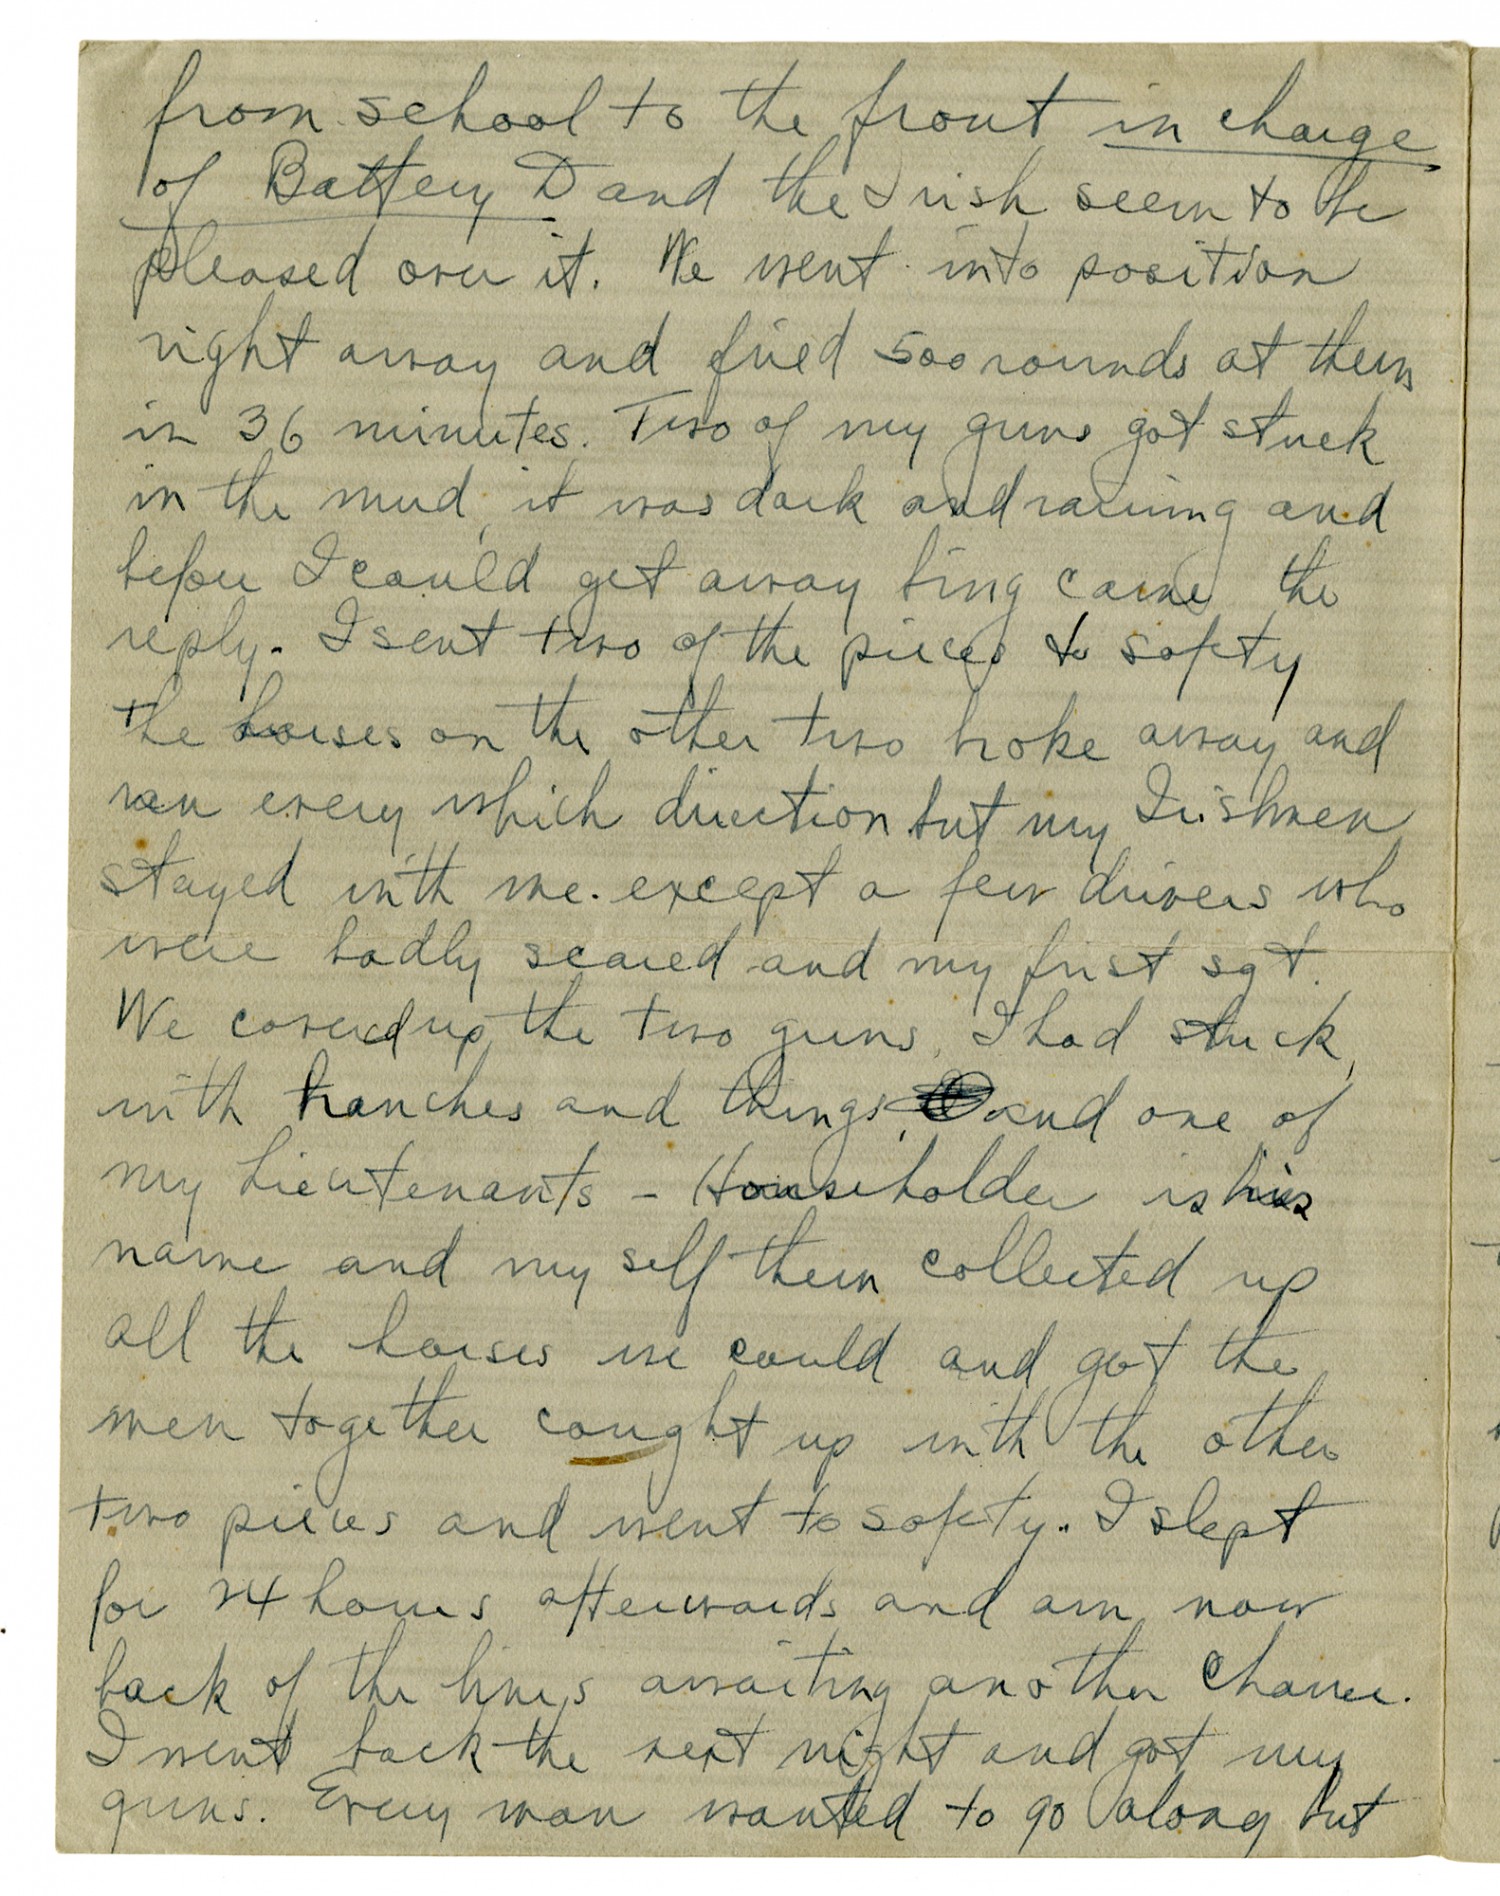 from school to the front in charge
of Battery D and the Irish seem to be
pleased over it. We went into position
right away and fired 500 rounds at them
in 36 minutes. Two of my guns got stuck
in the mud, it was dark and raining and
before I could get away bing came the
reply. I sent two of the pieces to safety
the horses on the other two broke away and
ran every which direction but my Irishmen
stayed with me. except a few drivers who
were badly scared and my first sgt.
We covered up the two guns, I had stuck,
with branches and things, and one of
my Lieutenants – Householder is his
name and my self them collected up
all the horses we could and got the
men together caught up with the other
two pieces and went to safety. I slept
for 24 hours afterwards and am now
back of the lines awaiting another chance.
I went back the next night and got my
guns. Every man wanted to go along but